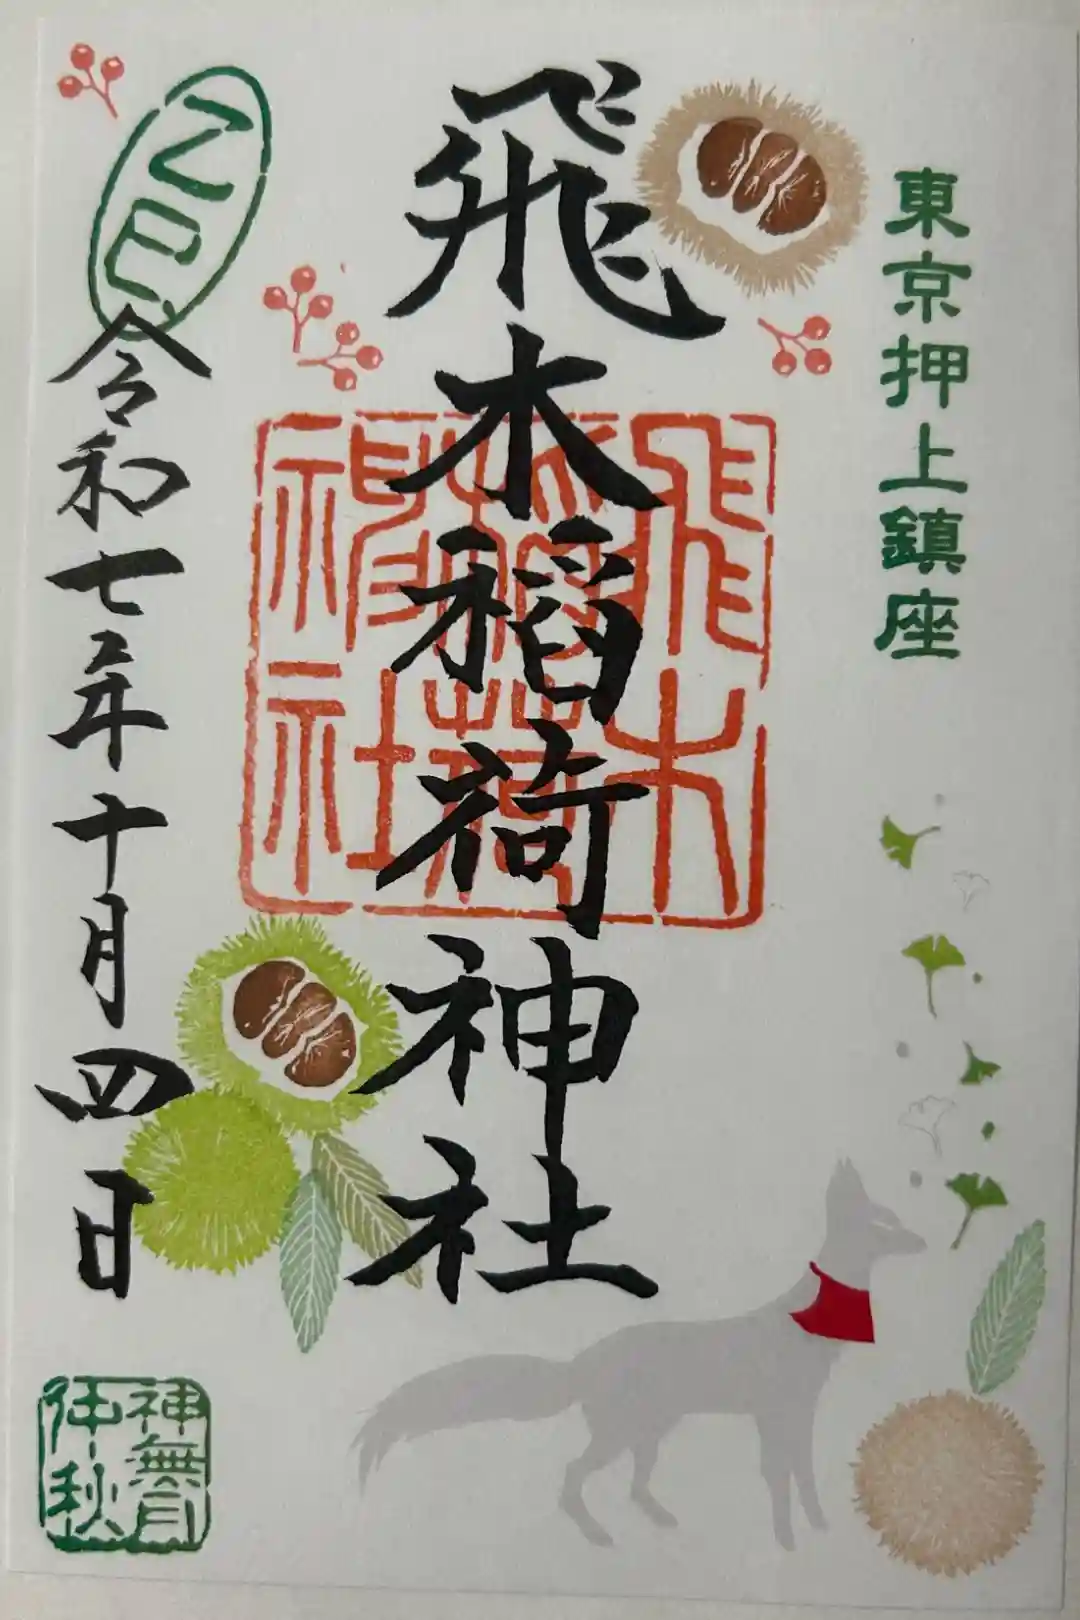 東京押上鎮座
飛木稲荷神社
飛木
稲荷
神社
乙巳
令和七年十月四日
神無月
仲秋